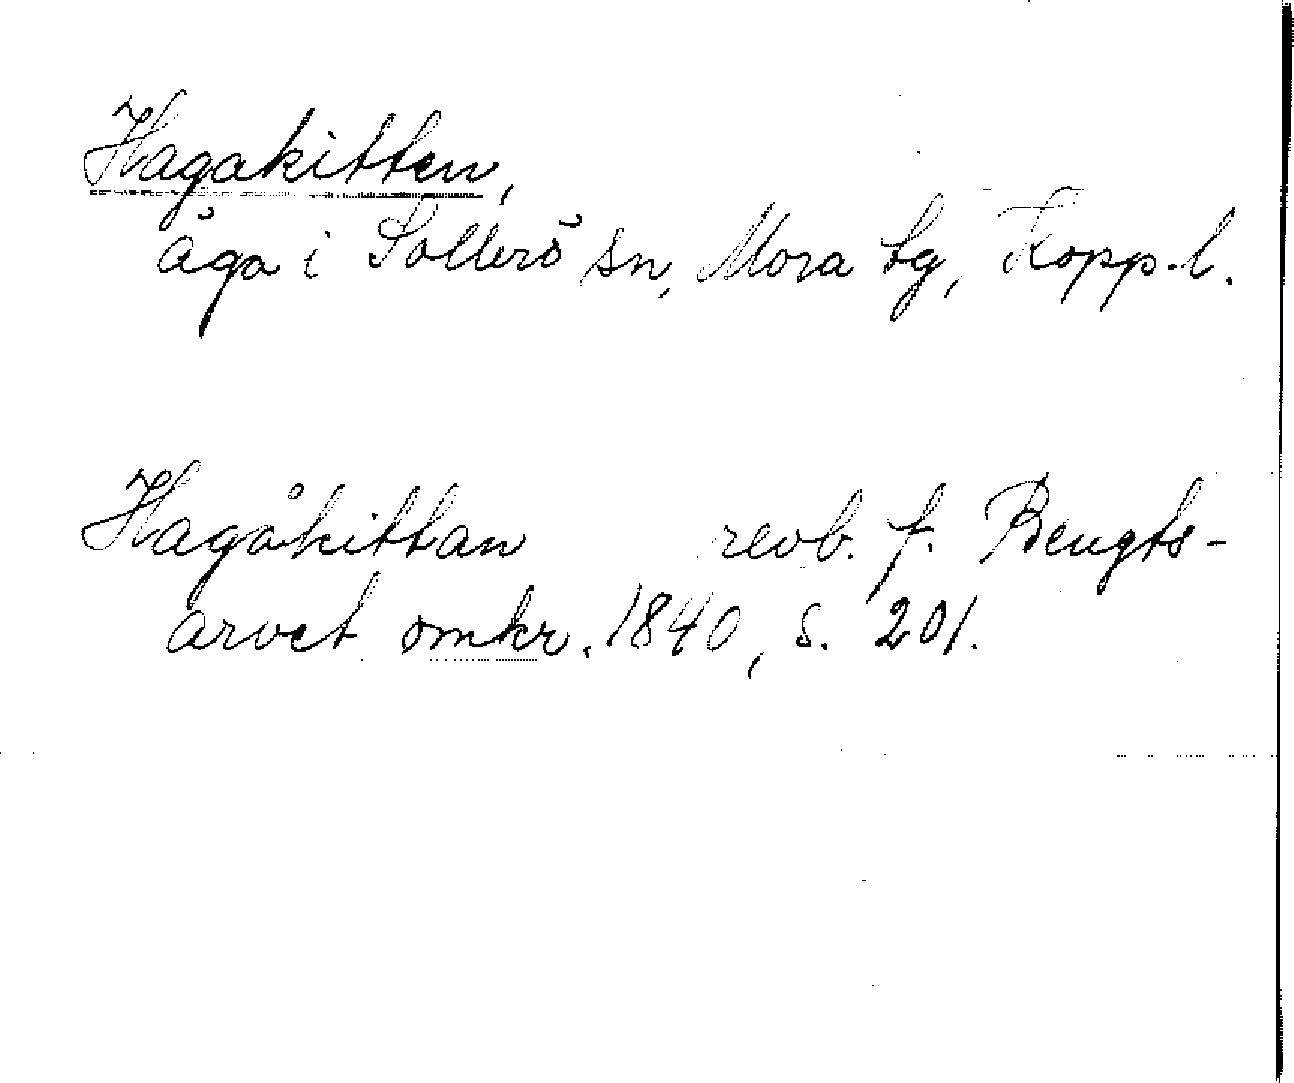 Hagakitten,
äga i Sollerö sn, Mora tg, Kopp.l.
Hagåkittan revb. f. Bengts-
arvet omkr. 1840, s. 201.